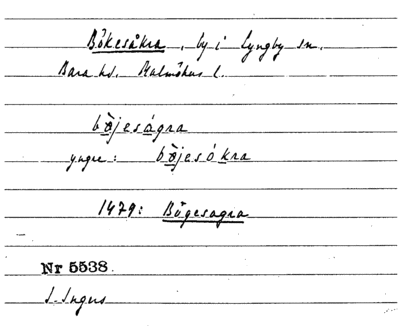 Bökesåkra, by i Lyngby sn.
Bara hd. Malmöhus l.
bö̀jeságra
yngre: bö̀jesókra
1479: Bögesagra
Nr 5538.
I. Ingers